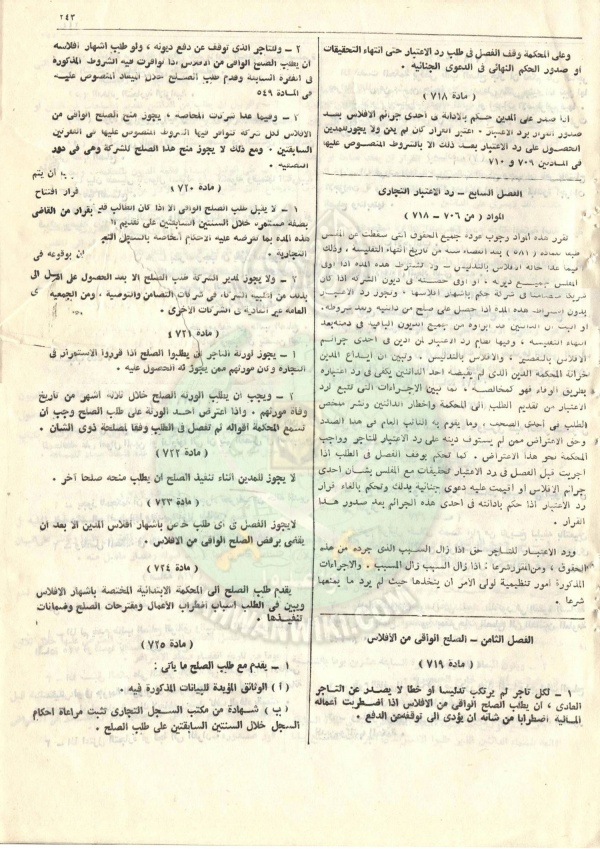 ٢٤٣
وعلى المحكمة وقف الفصل فى طلب رد الاعتبار حتى انتهاء التحقيقات
أو صدور الحكم النهائى فى الدعوى الجنائية .
مادة ( ٧١٨ )
اذا صدر على المدين حكم بالادانة فى احدى جرائم الافلاس بعد
صدور القرار برد الاعتبار ، اعتبر القرار كأن لم يكن ولا يجوز للمدين
الحصول على رد الاعتبار بعد ذلك الا بالشروط المنصوص عليها
فى المادتين ٧٠٩ و ٧١٠
الفصل السابع – رد الاعتبار التجارى
المواد ( من ٧٠٦ – ٧١٨ )
تقرر هذه المواد وجوب عودة جميع الحقوق التى سقطت عن المفلس
طبقا للمادة ( ٥٨١ ) بعد انقضاء سنة من تاريخ انتهاء التفليسة ، وذلك
فيما عدا حالة الافلاس بالتدليس – رد تشترط هذه المدة اذا اوفى
المفلس جميع ديونه ، أو اوفى حصته فى ديون الشركة اذا كان
شريكا متضامنا فى شركة حكم باشهار افلاسها ، ويجوز رد الاعتبار
بدون اشتراط هذه المدة اذا حصل على صلح من دائنيه ونفذ شروطه،
او اثبت ان الدائنين قد ابراوه من جميع الديون الباقية فى ذمته بعد
انتهاء التفليسة ، وفيها نظام رد الاعتبار لمن ادين فى احدى جرائم
الافلاس بالتقصير ، والافلاس بالتدليس ، وتبين ان ايداع المدين
خزانة المحكمة الدين الذى لم يقبضه احد الدائنين يكفى فى رد اعتباره
بطريق الوفاء فهو كمخالصة ، كما تبين الاجراءات التى تتبع لرد
الاعتبار من تقديم الطلب الى المحكمة واخطار الدائنين ونشر ملخص
الطلب فى احدى الصحف، وما يقوم به النائب العام فى هذا الصدد
وحق الاعتراض ممن لم يستوف دينه على رد الاعتبار للتاجر وواجب
المحكمة نحو هذا الاعتراض . كما تحكم بوقف الفصل فى الطلب اذا
اجريت قبل الفصل فى رد الاعتبار تحقيقات مع المفلس بشأن احدى
جرائم الافلاس أو اقيمت عليه دعوى جنائية بذلك وتحكم بالغاء قرار
رد الاعتبار اذا حكم بادانته فى احدى هذه الجرائم بعد صدور هذا
القرار .
ورد الاعتبار للتاجر حق اذا زال السبب الذى جرده من هذه
الحقوق ، ومن المقرر شرعا : اذا زال السبب زال المسبب . والاجراءات
المذكورة أمور تنظيمية لولى الأمر أن يتخذها حيث لم يرد ما يمنعها
شرعا .
الفصل الثامن – الصلح الواقى من الافلاس
مادة ( ٧١٩ )
١ – لكل تاجر لم يرتكب تدليسا أو خطأ لا يصدر عن التاجر
العادى ، أن يطلب الصلح الواقى من الافلاس اذا اضطربت أعماله
المالية اضطرابا من شأنه أن يؤدى الى توقفه عن الدفع .
٢ – وللتاجر الذى توقف عن دفع ديونه ، ولو طلب اشهار افلاسه
أن يطلب الصلح الواقى من الافلاس اذا توافرت فيه الشروط المذكورة
فى الفقرة السابقة وقدم طلب الصلح خلال الميعاد المنصوص عليه
فى المادة ٥٤٩
٣ – وفيما عدا شركات المحاصة ، يجوز منح الصلح الواقى من
الافلاس لكل شركة تتوافر فيها الشروط المنصوص عليها فى الفقرتين
السابقتين . ومع ذلك لا يجوز منح هذا الصلح للشركة وهى فى دور
التصفية .
مادة ( ٧٢٠ )
١ – لا يقبل طلب الصلح الواقى الا اذا كان الطالب قد
بصفة مستمرة خلال السنتين السابقتين على تقديم
هذه المدة بما تفرضه عليه الأحكام الخاصة بالسجل
التجارية .
٢ – ولا يجوز لمدير الشركة طلب الصلح الا بعد الحصول على
بذلك من اغلبية الشركاء فى شركات التضامن والتوصية ، ومن الجمعية
العامة غير العادية فى الشركات الأخرى .
أن يتم
قرار افتتاح
بقرار من القاضى
أن بوقوعه فى
مادة ( ٧٢١ )
١ – يجوز لورثة التاجر أن يطلبوا الصلح اذا قرروا الاستمرار فى
التجارة وكان مورثهم ممن يجوز له الحصول عليه .
٢ – ويجب أن يطلب الورثة الصلح خلال ثلاثة أشهر من تاريخ
وفاة مورثهم . واذا اعترض أحد الورثة على طلب الصلح وجب أن
تسمع المحكمة أقواله ثم تفصل فى الطلب وفقا لمصلحة ذوى الشأن .
مادة ( ٧٢٢ )
لا يجوز للمدين أثناء تنفيذ الصلح أن يطلب منحه صلحا آخر .
مادة ( ٧٢٣ )
لا يجوز الفصل فى أى طلب خاص باشهار افلاس المدين الا بعد أن
يقضى برفض الصلح الواقى من الافلاس .
مادة ( ٧٢٤ )
يقدم طلب الصلح الى المحكمة الابتدائية المختصة باشهار الافلاس
ويبين فى الطلب أسباب اضطراب الأعمال ومقترحات الصلح وضمانات
تنفيذها .
مادة ( ٧٢٥ )
١ – يقدم مع طلب الصلح ما يأتى :
( أ ) الوثائق المؤيدة للبيانات المذكورة فيه .
( ب ) شهادة من مكتب السجل التجارى تثبت مراعاة أحكام
السجل خلال السنتين السابقتين على طلب الصلح .